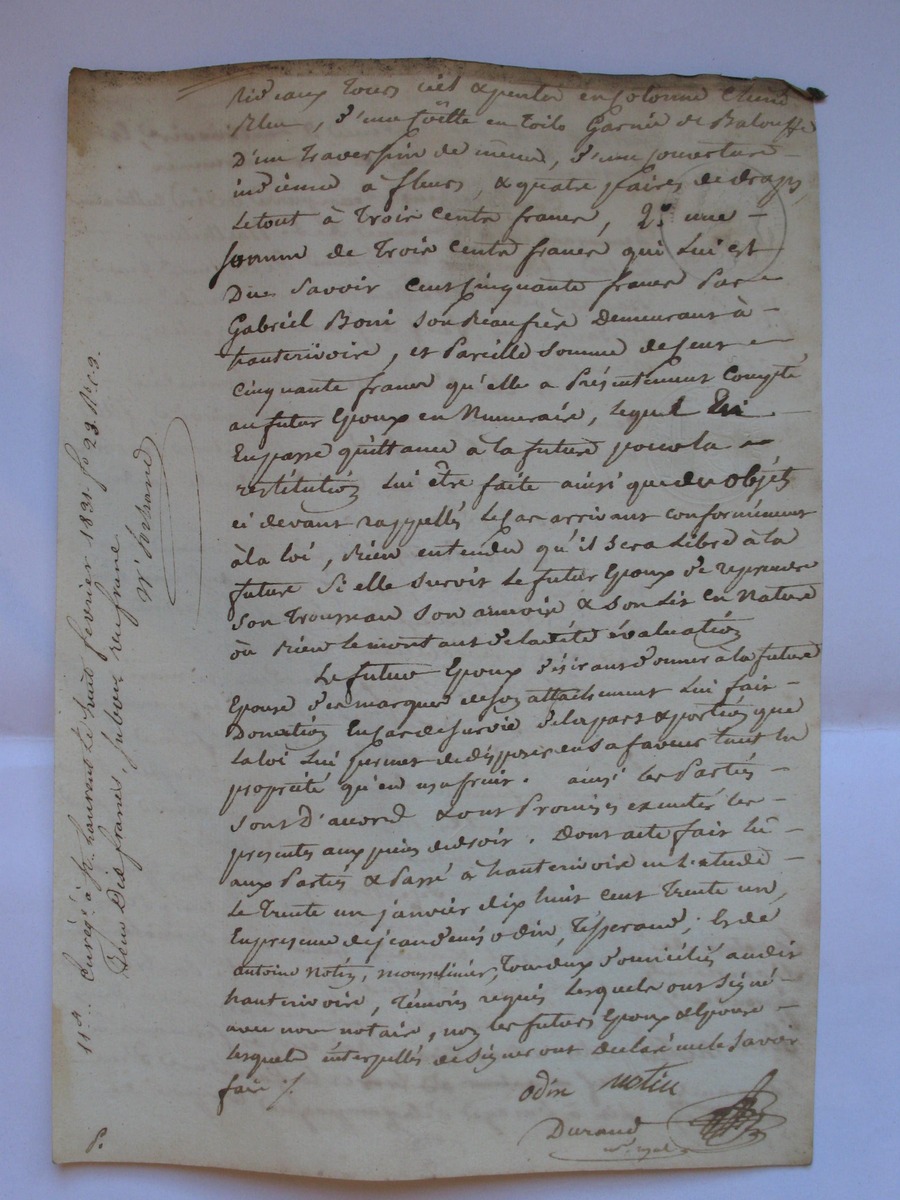 Rideaux tours ciel & pentes en cotonne chiné
Bleu, d'une Coëtte en toile Garnie de Balouffe
D'un traversin de même, d'une couverture
indienne à fleurs, & quatre paires de draps,
Le tout à Trois Cents francs, 2° une
Somme de Trois Cents francs qui Lui est
Due Savoir Cent Cinquante francs Par
Gabriel Boni Son Beaufrère Demeurant à
hauterivoire, et Pareille Somme de Cent
Cinquante francs qu'elle a Présentement Compté
au futur Epoux en Numeraire, lequel Lui
En passe quittance à la future pour la
restitution Lui être faite ainsi que des objets
ci devant rappellés le Cas arrivant conformément
à la loi, Bien entendu qu'il Sera Libre à la
future Si elle Survit Le futur Epoux de reprendre
Son Trousseau Son armoire & Son Lit en Nature
ou Bien le montant de la dité évaluation
Le futur Epoux désirant donner à la future
Epouse des marques de Son attachement Lui fait
Donation En Cas de Survie de la part & portion que
La loi Lui permet de disposer en Sa faveur tant en
propriété qu'en usufruit. ainsi les Parties
Sont D'accord & ont Promises executer les
presentes aux peines de droit. Dont acte fait lu
aux Parties & Passé à hauterivoire en L'etude
Le Trente un janvier dix huit Cent Trente un,
En presence de jean denis odin, Tisserand, Et de
antoine Notin, mousselinier, Tous deux domiciliés audit
hauterivoire, Témoins requis Lesquels ont Signé
avec nous notaire, non les futurs Epoux & Epouse
Lesquels interpellés de Signer ont declaré ne le Savoir
faire ./.
odin notin
Durand
11 a. Enreg.é à St. Laurent Le huit fevrier 1831 f° 23 R° C 2.
Reçu Dix francs, Subvon un franc